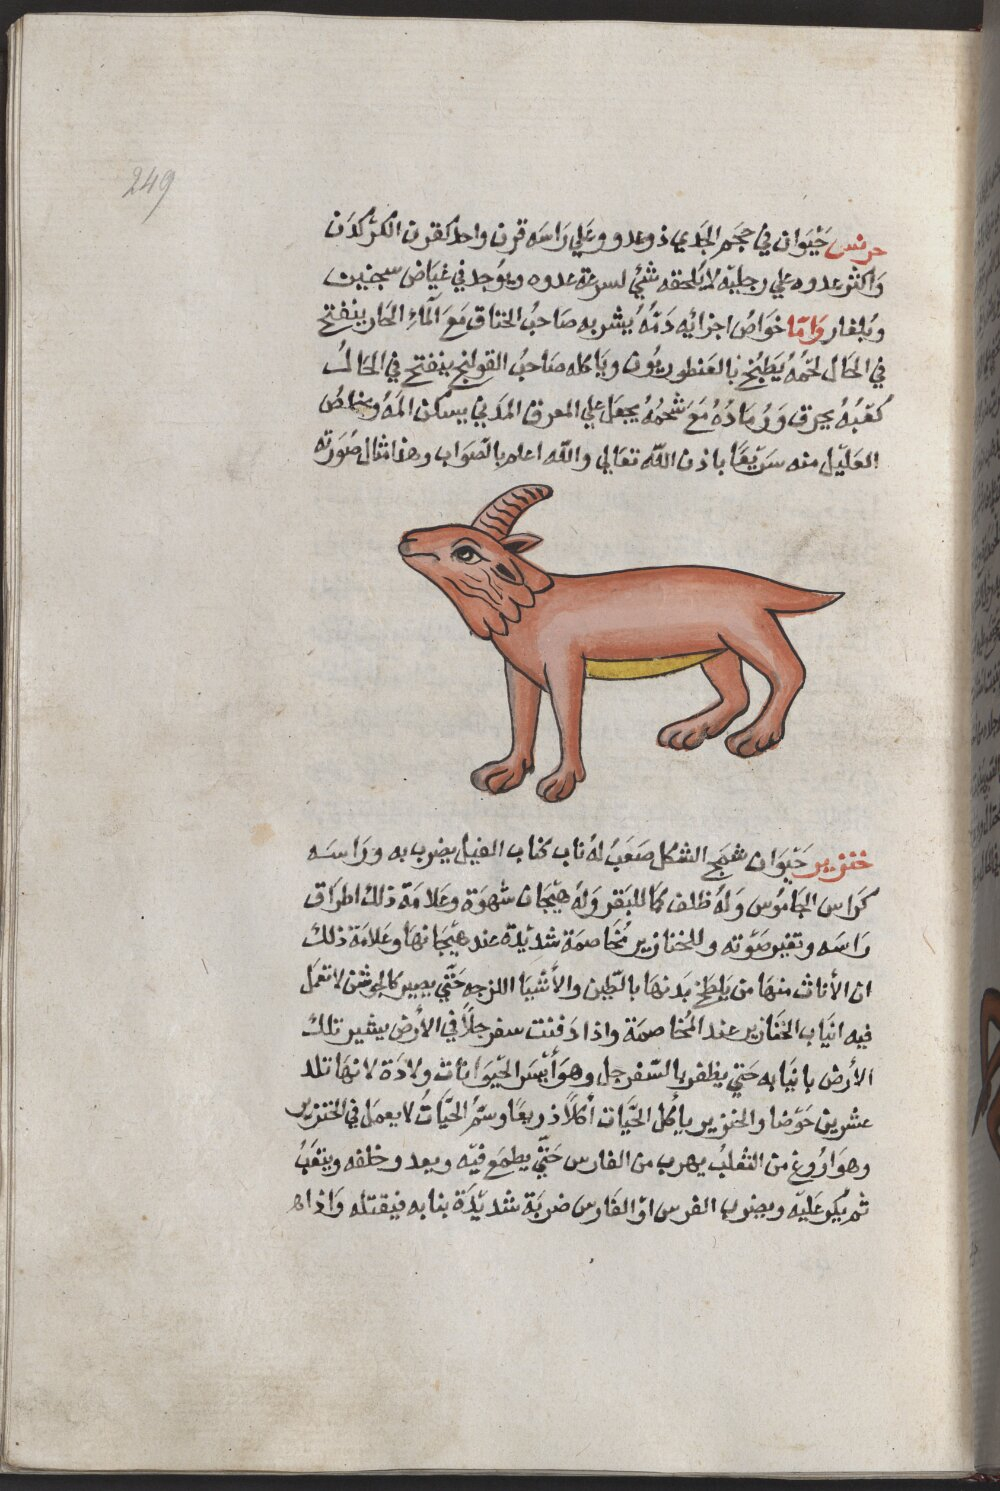 249
حرنس حَيَوان في حجم الجَدي ذو عدو وعَلي رَاسَه قرن واحد كقرن الكركدَن
وَاكثر عدوه علي رجليه لا يَلحقه شئ لسرعة عدوه ويوُجد في غيَاض سجنين
وبلغار وَامّا خوَاصُ اجزائه دَمّهُ يُشربه صَاحبُ الخناق مَعَ الَمآء الحَار ينفتح
في الحَال لحَمُه يُطبَخ بالعَنطوريُون ويَاكله صَاحبُ القولنج ينفتح في الحَالُ
كعْبُهُ يحرق وَرُمادُهُ مَعَ شحمُهُ يجعَل علي المعرق المدني يسكن المَهُ ويخلصُ
العَليّل منه سَرَيعًا باذن اللّه تعَالي واللّه اعلم بالصَوَاب وهذا مثال صُوَرته
خنزير حَيَوان سَمج الشكل صَعَبُ لهُ ناب كناب الفيل يضرب به وَرَاسَه
كَرَاس الجَامُوس وَلهُ ظلف كمَا للبَقر وَلهُ هَيَجَان شهوَة وعَلامَة ذلكُ اطرَاق
رَاسَه وتغير صَوته وللخنازير مُخَاصمَة شديدَة عند هَيَجَانهَا وعَلامَة ذلك
ان الأناث منهَا من يَلطخ بَدنهَا بالطّين والأشيَا اللزجه حَتّي يصير كالجوشن لا تعمَل
فيه انيَاب الخنَازير عند المُخاصمَة واذا دَفنت سفرجلاً في الأرض يثير تلك
الارض بانيَابه حَتي يظفر بالسّفرجل وهوَ أيسَر الحَيوَانات ولادَة لانهَا تلد
عشرين خنوصا والخنزير ياكُل الحَيّات أكلاً ذريعًا وسَمُّ الحَيّاتُ لا يعمَل في الخنزير
وهوَ ارُوغ من الثعلبُ يهرب من الفارس حَتّي يطمَع فيّه ويعدو خلفه ويتعَبُ
ثم يَكر عَليّه ويضرب الفرس او الفَارس ضربَة شديدَة بنابه فيقتله وَاذا